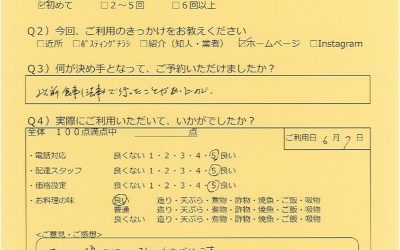 ☑初めて □2～5回 □6回以上
Q2）今回、ご利用のきっかけをお教えください
□近所 □ポスティングチラシ □紹介（知人・業者） ☑ホームページ □Instagram
Q3）何が決め手となって、ご予約いただけましたか？
以前食事に法事で行ったことがあったので。
Q4）実際にご利用いただいて、いかがでしたか？
全体 100点満点中 ＿＿＿＿＿点
ご利用日 6月7日
・電話対応 良くない 1・2・3・4・5 良い
・配達スタッフ 良くない 1・2・3・4・5 良い
・価格設定 良くない 1・2・3・4・5 良い
・お料理の味 良い 造り・天ぷら・煮物・酢物・焼魚・ご飯・吸物
普通 造り・天ぷら・煮物・酢物・焼魚・ご飯・吸物
良くない 造り・天ぷら・煮物・酢物・焼魚・ご飯・吸物
＜ご意見・ご感想＞